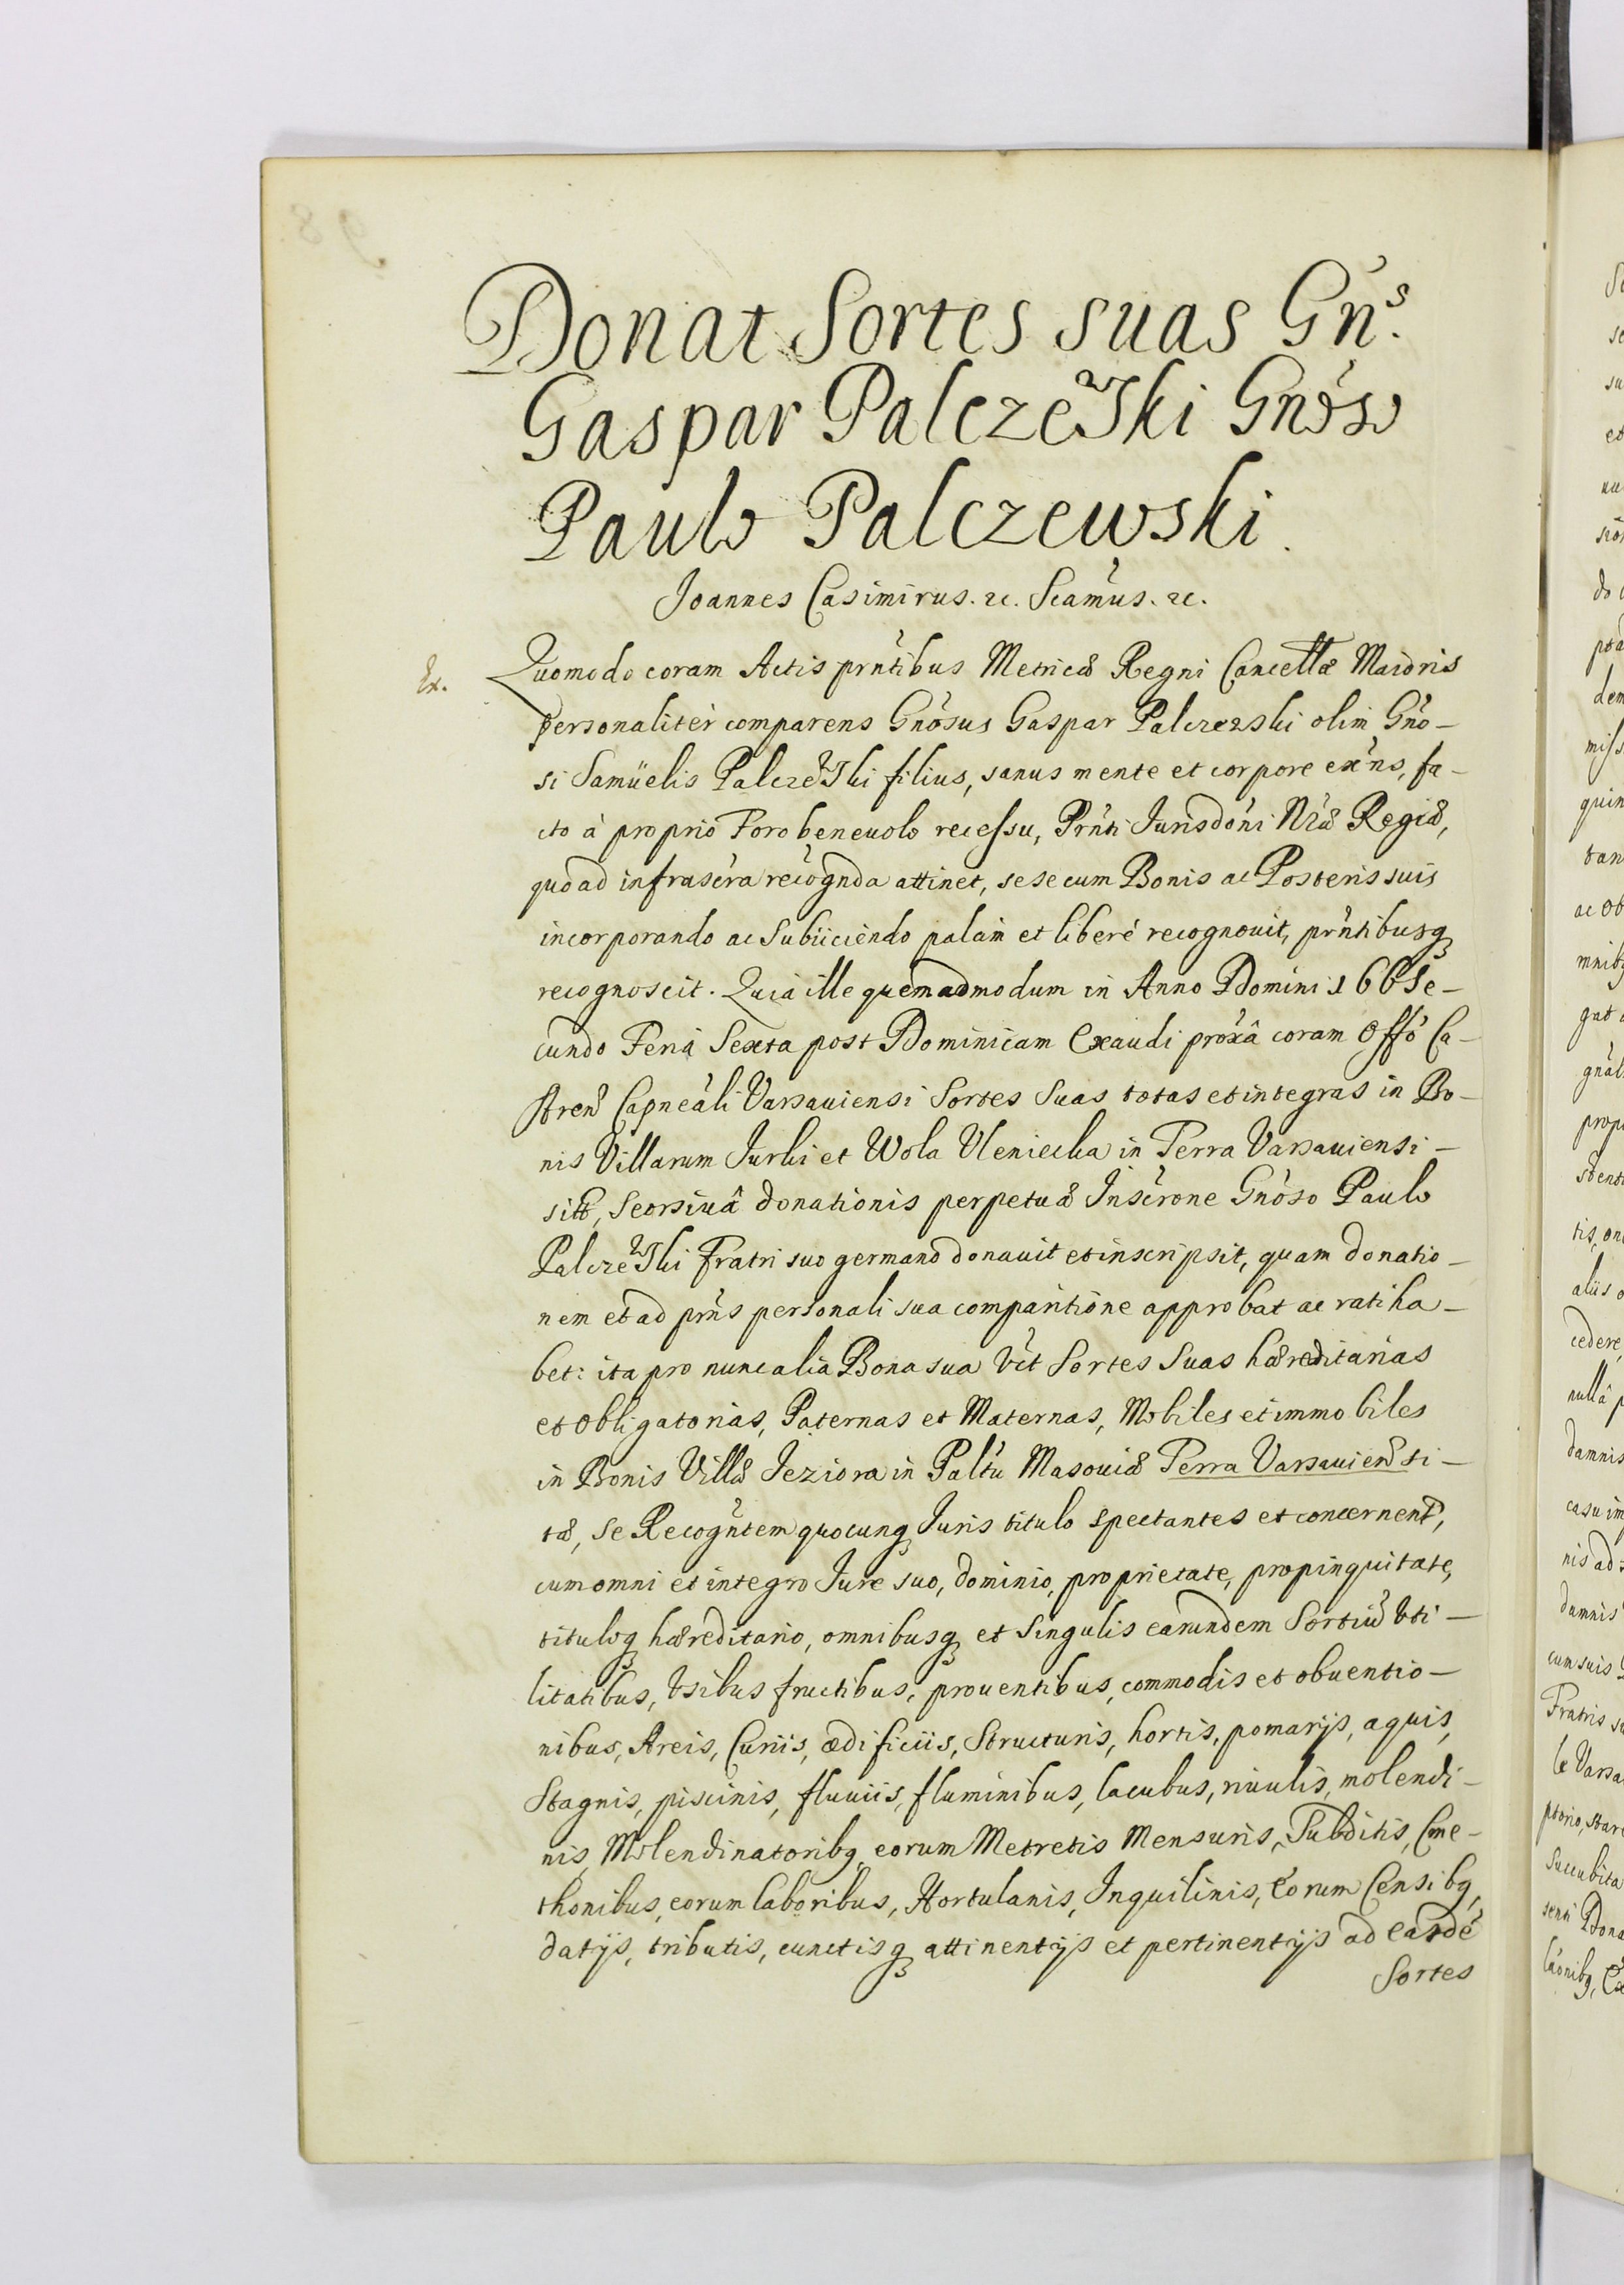 Donat Sortes suas Gńs.
Gaspar Palczewski Gnóso
Paulo Palczewski.
Joannes Casimirus. &c. Seámus. &c.
Ex. Quomodo coram Actis prńtibus Metricæ Regni Cancellæ Maioris
personalitèr comparens Gnósus Gaspar Palczewski olim Gńo-
si Samüelis Palczewski filius, sanus mente et corpore exńs, fa-
cto à proprio Foro beneuolo recessu, Prńti Jurisdóni Nræ Regiæ,
quoad infrascŕa recógnda attinet, sese cum Bonis ac Posteris suis
incorporando ac Subiiciendo palàm et liberè recognouit, prńtibusq
recognoscit. Quià ille quemadmodum in Anno Domini 166 Se-
cundo Feria Sexta post Dominicam Exaudi próxâ coram Offó Ca-
stren Capneáli Varsauiensi Sortes Suas totas et integras in Bo-
nis Villarum Jurki et Wola Vleniecka in Terra Varsauiensi-
sitis, Seorsiuâ donationis perpetuæ Inscŕone Gnóso Paulo
Palczewski Fratri suo germano donauit et inscripsit, quam donatio-
nem et ad prńs personali sua comparitióne approbat ac ratiha-
bet: ita pro nunc alia Bona sua Vĺt Sortes Suas hæreditarias
et obligatorias, Paternas et Maternas, Mobiles et immobiles
in Bonis Villæ Jeziora in Paltŭ Masouiæ Terra Varsauien si-
tæ, Se Recogńtem quocunq Juris titulo spectantes et concernen,
cum omni et integro Jure suo, dominio, proprietate, propinquitate,
tituloq hæreditario, omnibusq et Singulis earundem Sortiu Vti-
litatibus, Vsibus fructibus, prouentibus, commodis et obuentio-
nibus, Areis, Curiis, ædificiis, Structuris, hortis, pomarijs, aquis,
Stagnis, piscinis, fluuiis, fluminibus, lacubus, riuulis, molendi-
nis, Molendinatoribq eorum Metretis Mensuris, Subditis, Cme-
thonibus, eorum laboribus, Hortulanis, Inquilinis, Eorum Censibq,
datijs, tributis, cunctisq attinentijs et pertinentijs ad easdé
Sortes